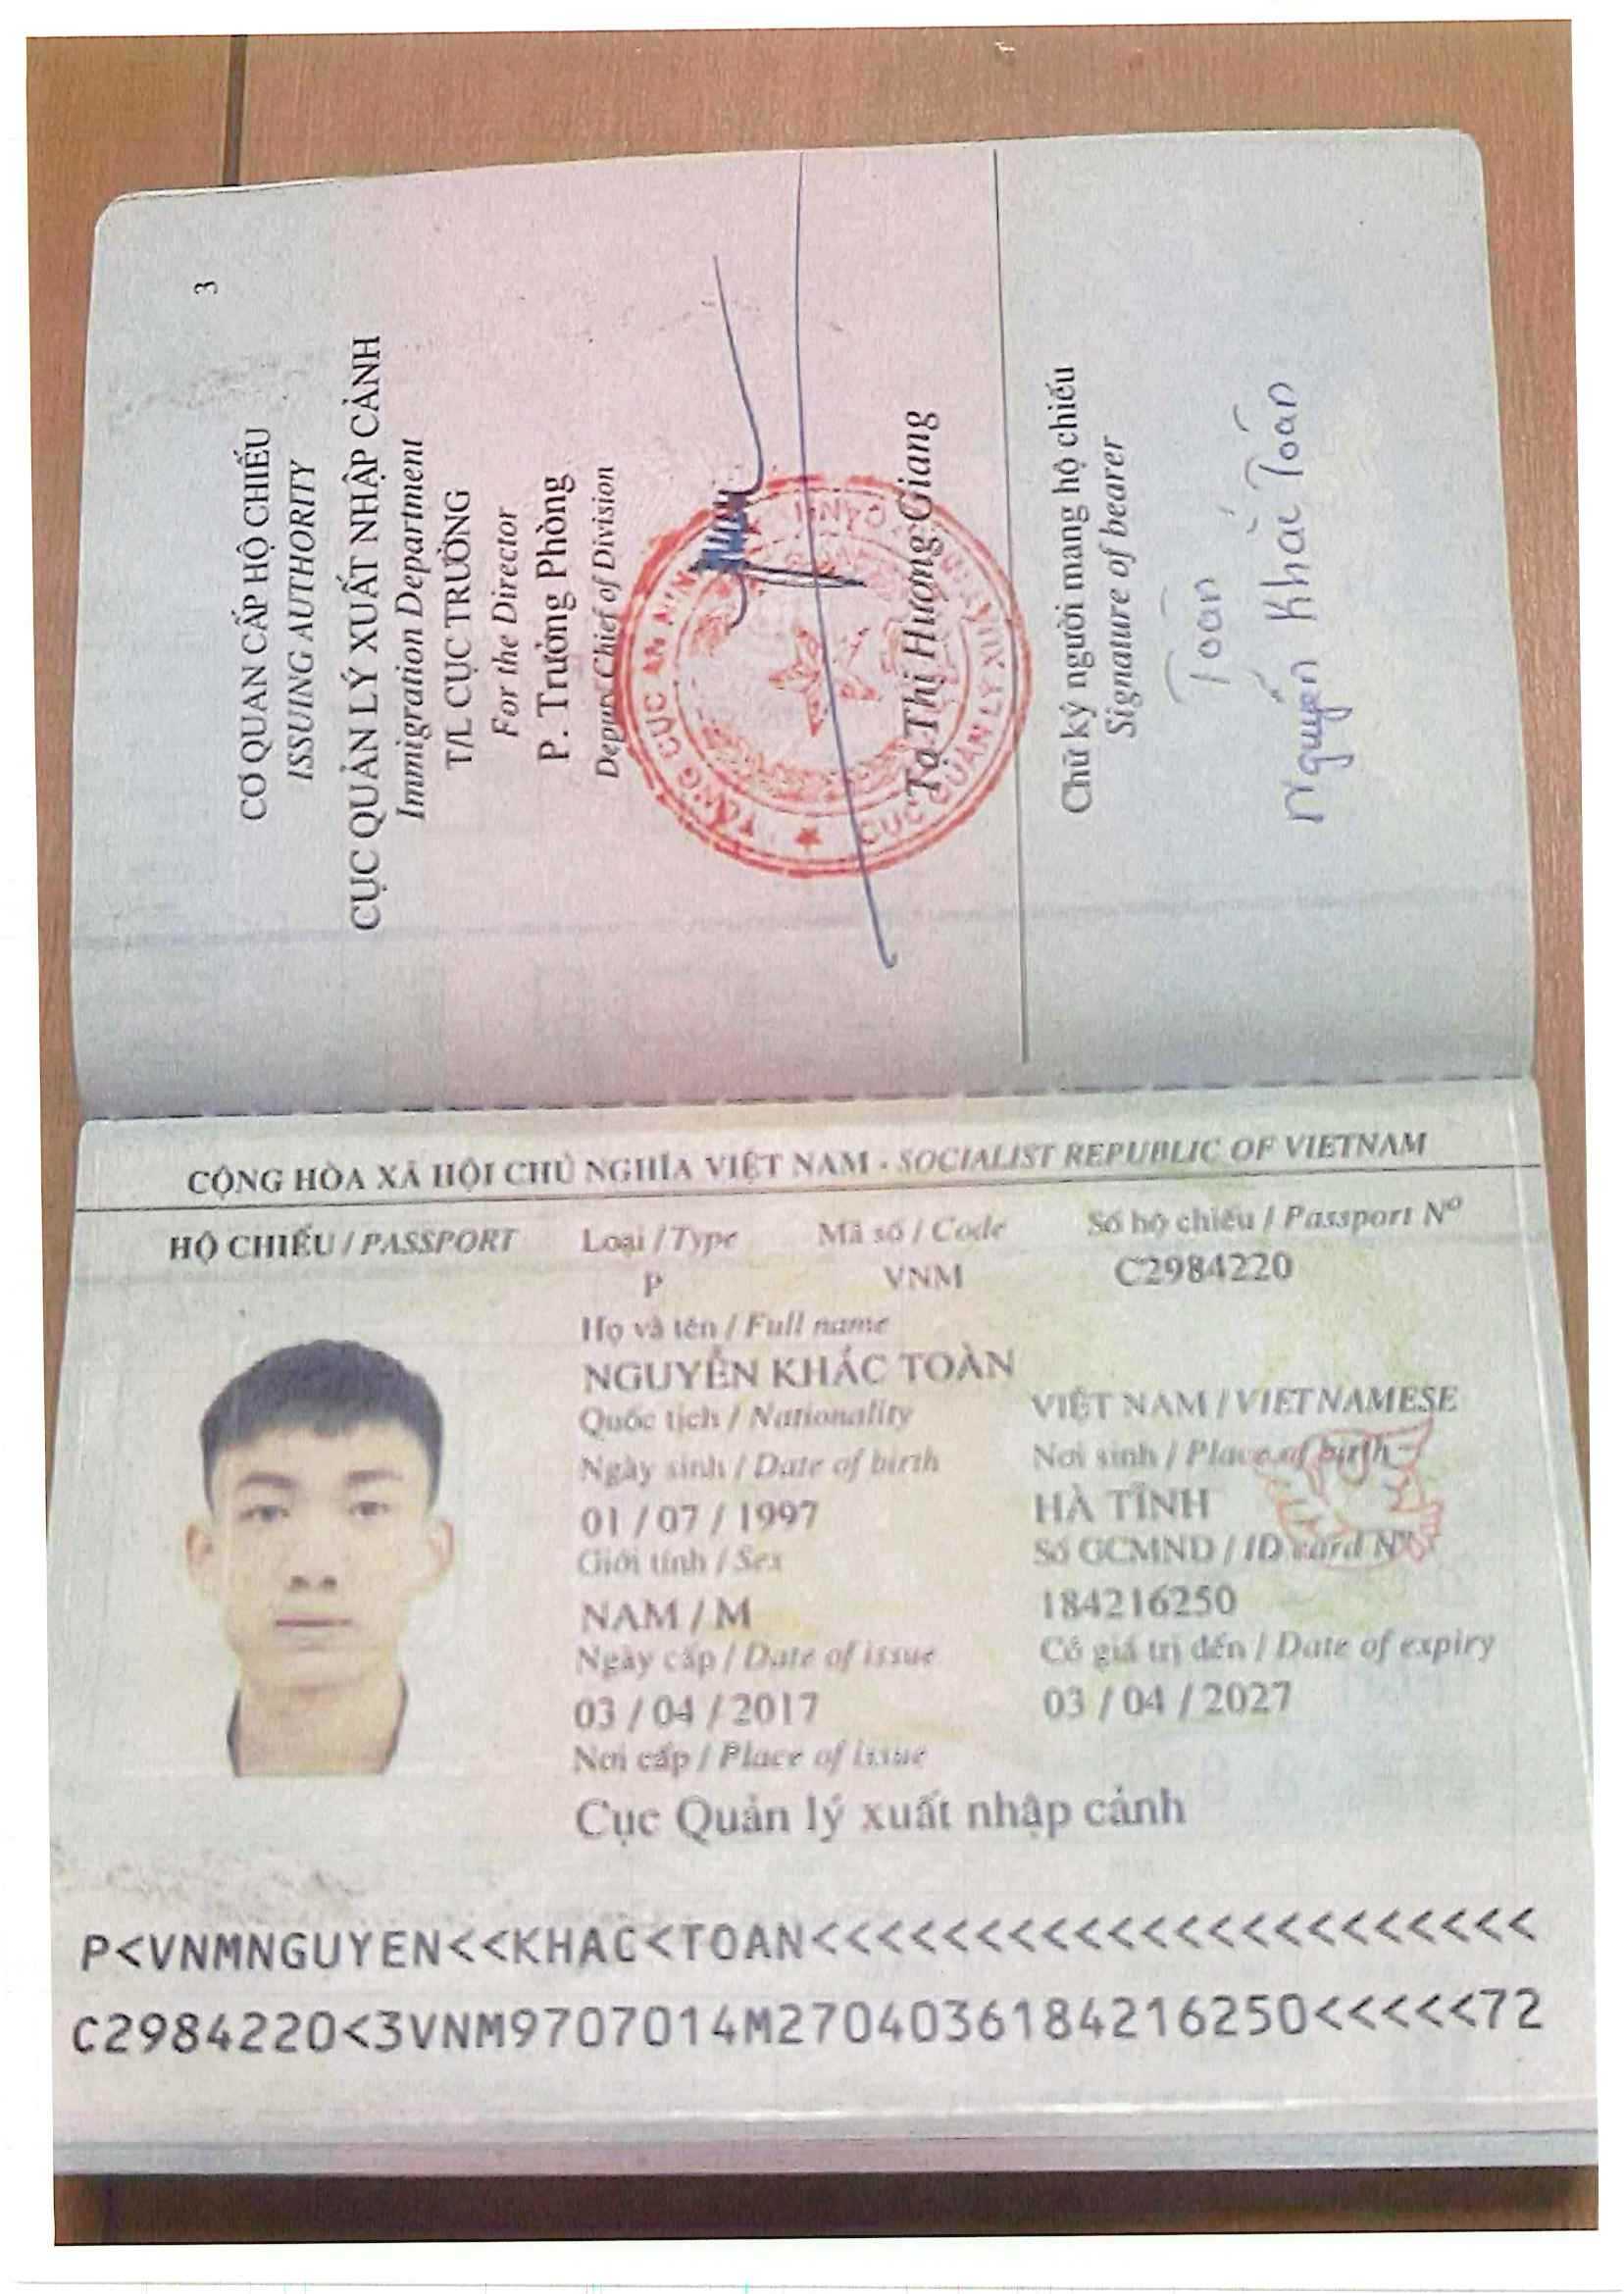 3
CƠ QUAN CẤP HỘ CHIẾU
ISSUING AUTHORITY
CỤC QUẢN LÝ XUẤT NHẬP CẢNH
Immigration Department
T/L CỤC TRƯỞNG
For the Director
P. Trưởng Phòng
Deputy Chief of Division
TỔNG CỤC AN NINH
CỤC QUẢN LÝ XUẤT
Tạ Thị Hương Giang
Chữ ký người mang hộ chiếu
Signature of bearer
Toàn
Nguyễn Khắc Toàn
CỘNG HÒA XÃ HỘI CHỦ NGHĨA VIỆT NAM - SOCIALIST REPUBLIC OF VIETNAM
HỘ CHIẾU / PASSPORT Loại / Type Mã số / Code Số hộ chiếu / Passport Nº
P VNM C2984220
Họ và tên / Full name
NGUYỄN KHẮC TOÀN
Quốc tịch / Nationality VIỆT NAM / VIETNAMESE
Ngày sinh / Date of birth Nơi sinh / Place of birth
01 / 07 / 1997 HÀ TĨNH
Giới tính / Sex Số GCMND / ID card Nº
NAM / M 184216250
Ngày cấp / Date of issue Có giá trị đến / Date of expiry
03 / 04 / 2017 03 / 04 / 2027
Nơi cấp / Place of issue
Cục Quản lý xuất nhập cảnh
P<VNMNGUYEN<<KHAC<TOAN<<<<<<<<<<<<<<<<<<<<<<
C2984220<3VNM9707014M2704036184216250<<<<<72